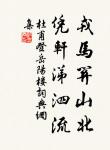 戎馬關山北
憑軒涕泗流
杜甫登岳陽樓詞典網
集